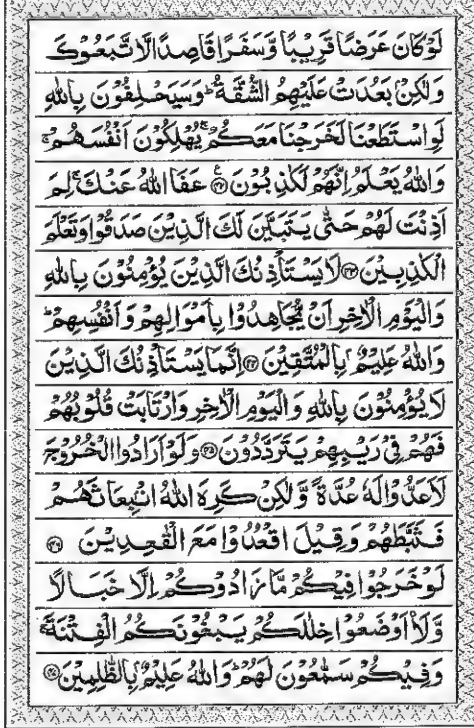 لَوْ كَانَ عَرَضًا قَرِيْبًا وَّسَفَرًا قَاصِدًا لَّاتَّبَعُوْكَ
وَلٰكِنْۢ بَعُدَتْ عَلَيْهِمُ الشُّقَّةُ ؕ وَسَيَحْلِفُوْنَ بِاللّٰهِ
لَوِ اسْتَطَعْنَا لَخَرَجْنَا مَعَكُمْ ۚ يُهْلِكُوْنَ اَنْفُسَهُمْ ۚ
وَاللّٰهُ يَعْلَمُ اِنَّهُمْ لَكٰذِبُوْنَ ﴿۴۲﴾ عَفَا اللّٰهُ عَنْكَ ۚ لِمَ
اَذِنْتَ لَهُمْ حَتّٰى يَتَبَيَّنَ لَكَ الَّذِيْنَ صَدَقُوْا وَتَعْلَمَ
الْكٰذِبِيْنَ ﴿۴۳﴾ لَا يَسْتَاْذِنُكَ الَّذِيْنَ يُؤْمِنُوْنَ بِاللّٰهِ
وَالْيَوْمِ الْاٰخِرِ اَنْ يُّجَاهِدُوْا بِاَمْوَالِهِمْ وَاَنْفُسِهِمْ ؕ
وَاللّٰهُ عَلِيْمٌۢ بِالْمُتَّقِيْنَ ﴿۴۴﴾ اِنَّمَا يَسْتَاْذِنُكَ الَّذِيْنَ
لَا يُؤْمِنُوْنَ بِاللّٰهِ وَالْيَوْمِ الْاٰخِرِ وَارْتَابَتْ قُلُوْبُهُمْ
فَهُمْ فِيْ رَيْبِهِمْ يَتَرَدَّدُوْنَ ﴿۴۵﴾ وَلَوْ اَرَادُوا الْخُرُوْجَ
لَاَعَدُّوْا لَهٗ عُدَّةً وَّلٰكِنْ كَرِهَ اللّٰهُ انْۢبِعَاثَهُمْ
فَثَبَّطَهُمْ وَقِيْلَ اقْعُدُوْا مَعَ الْقٰعِدِيْنَ ﴿۴۶﴾
لَوْ خَرَجُوْا فِيْكُمْ مَّا زَادُوْكُمْ اِلَّا خَبَالًا
وَّلَا۟اَوْضَعُوْا خِلٰلَكُمْ يَبْغُوْنَكُمُ الْفِتْنَةَ ۚ
وَفِيْكُمْ سَمّٰعُوْنَ لَهُمْ ؕ وَاللّٰهُ عَلِيْمٌۢ بِالظّٰلِمِيْنَ ﴿۴۷﴾